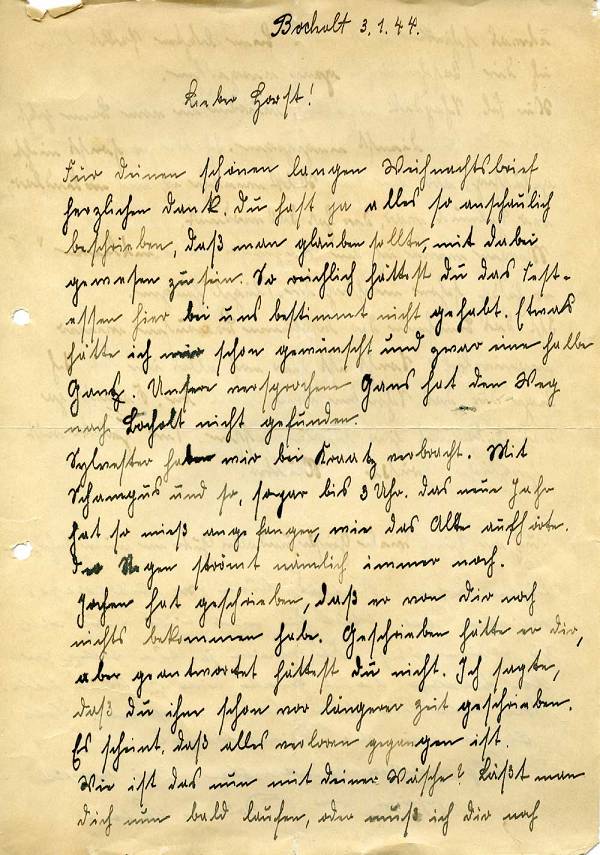 Bocholt 3.1.44.
Lieber Horst!
Für deinen schönen langen Weihnachtsbrief
herzlichen dank. du hast ja alles so anschaulich
beschrieben, daß man glauben sollte, mit dabei
gewesen zu sein. So reichlich hättest du das Fest-
essen hier bei uns bestimmt nicht gehabt. Etwas
hätte ich mir schon gewünscht und zwar eine halbe
Gans. Unsere versprochene Gans hat den Weg
nach Bocholt nicht gefunden.
Sylvester haben wir bei Kraatz verbracht. Mit
Schampus und so, sogar bis 3 Uhr. das neue Jahr
hat so mieß angefangen, wie das Alte aufhörte.
der Regen strömt nämlich immer noch.
Jochen hat geschrieben, daß er von dir noch
nichts bekommen habe. Geschrieben hätte er dir,
aber geantwortet hättest du nicht. Ich sagte,
daß du ihm schon vor längerer zeit geschrieben.
Es scheint, daß alles verloren gegangen ist.
Wie ist das nun mit deiner Wäsche? Läßt man
dich nun bald laufen, oder muß ich dir noch